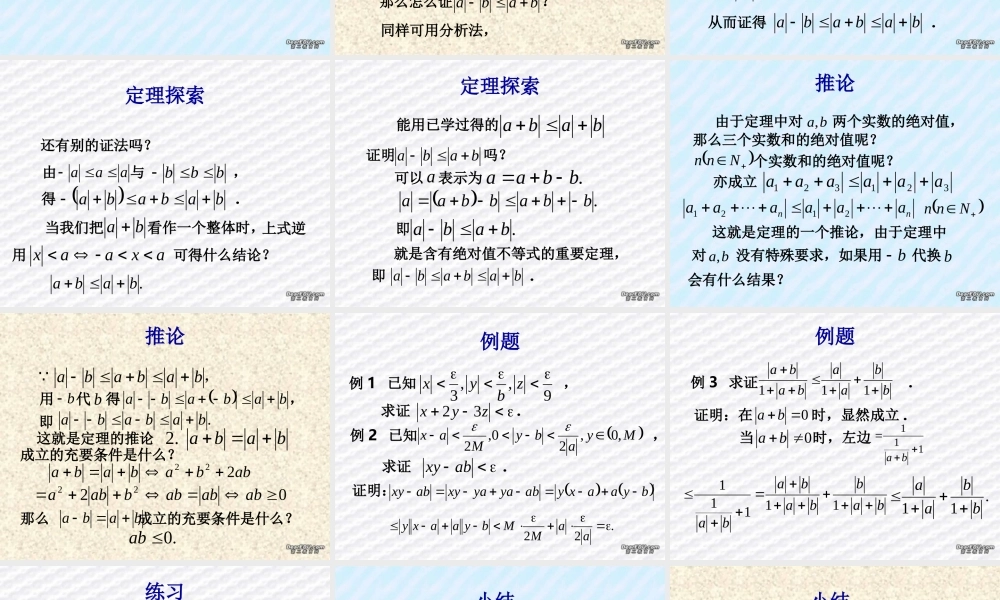 那么怎么证 a - b ≤ a + b ?
同样可用分析法，
从而证得 a - b ≤ a + b ≤ a + b .
定理探索
还有别的证法吗？
由 - a ≤ a ≤ a 与 - b ≤ b ≤ b ，
得 - ( a + b ) ≤ a + b ≤ a + b .
当我们把 a + b 看作一个整体时，上式逆
用 x ≤ a ⇔ - a ≤ x ≤ a 可得什么结论？
a + b ≤ a + b .
定理探索
能用已学过得的 a + b ≤ a + b
证明 a - b ≤ a + b 吗？
可以 a 表示为 a = a + b - b.
a = ( a + b ) - b ≤ a + b + - b .
即 a - b ≤ a + b .
就是含有绝对值不等式的重要定理，
即 a - b ≤ a + b ≤ a + b .
推论
由于定理中对 a,b 两个实数的绝对值，
那么三个实数和的绝对值呢？
n(n∈N₊)个实数和的绝对值呢？
亦成立 a₁ + a₂ + a₃ ≤ a₁ + a₂ + a₃
a₁ + a₂ + ⋯ + aₙ ≤ a₁ + a₂ + ⋯ + aₙ n(n∈N₊)
这就是定理的一个推论，由于定理中
对 a,b 没有特殊要求，如果用 - b 代换 b
会有什么结果？
推论
∵ a - b ≤ a + b ≤ a + b ，
用 - b 代 b 得 a - - b ≤ a + (- b) ≤ a + - b ，
即 a - b ≤ a - b ≤ a + b .
这就是定理的推论 2. a + b = a + b
成立的充要条件是什么？
a + b = a + b ⇔ a² + b² + 2ab
= a² + 2 ab + b² ⇔ ab = ab ⇔ ab ≥ 0
那么 a - b = a + b 成立的充要条件是什么？
ab ≤ 0.
例题
例 1 已知 x < ε/3 , y < ε/b , z < ε/9 ，
求证 x + 2y - 3z < ε .
例 2 已知 x - a < ε/2M , 0 < y - b < ε/2 a , y ∈ (0, M) ，
求证 xy - ab < ε .
证明： xy - ab = xy - ya + ya - ab = y(x - a) + a(y - b)
≤ y x - a + a y - b < M · ε/2M + a · ε/2 a = ε.
例题
例 3 求证 a + b / 1 + a + b ≤ a / 1 + a + b / 1 + b .
证明：在 a + b = 0 时，显然成立 .
当 a + b ≠ 0 时，左边 = 1 / 1/ a + b + 1
≤ 1 / 1/ a + b + 1 = a + b / 1 + a + b + b / 1 + a + b ≤ a / 1 + a + b / 1 + b .
练习
小结
小结